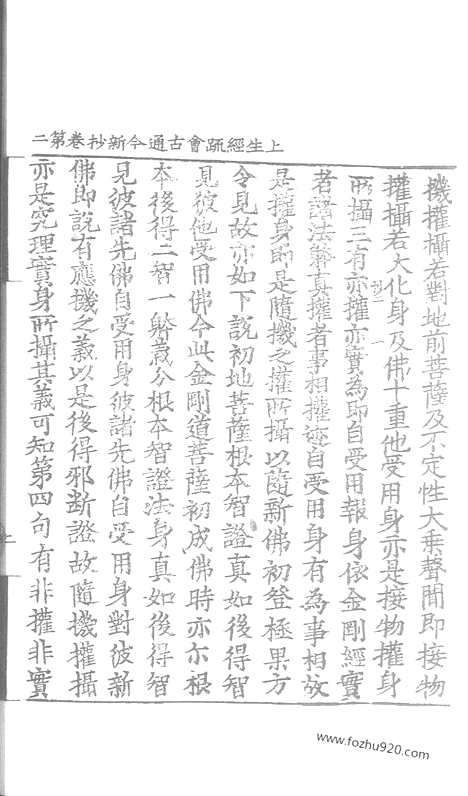 上生經疏會古通今新抄卷第二
機權攝若對地前菩薩及不定性大乗聲聞即接物
權攝若大化身及佛十重他受用身亦是接物權身
所攝三有亦權亦實為即自受用報身依金剛經實
者諸法躰真權者事相權迹自受用身有為事相故
是權身即是隨機之權所攝以隨新佛初登極果方
令見故亦如下說初地菩薩根本智證真如後得智
見彼他受用佛今此金剛道菩薩初成佛時亦尒根
本後得二智一躰義分根本智證法身真如後得智
見彼諸先佛自受用身彼諸先佛自受用身對彼新
佛即說有應機之義以是後得邪斷證故隨機權攝
亦是究理實身所攝其義可知第四句有非權非實
上
www.fozhu920.com